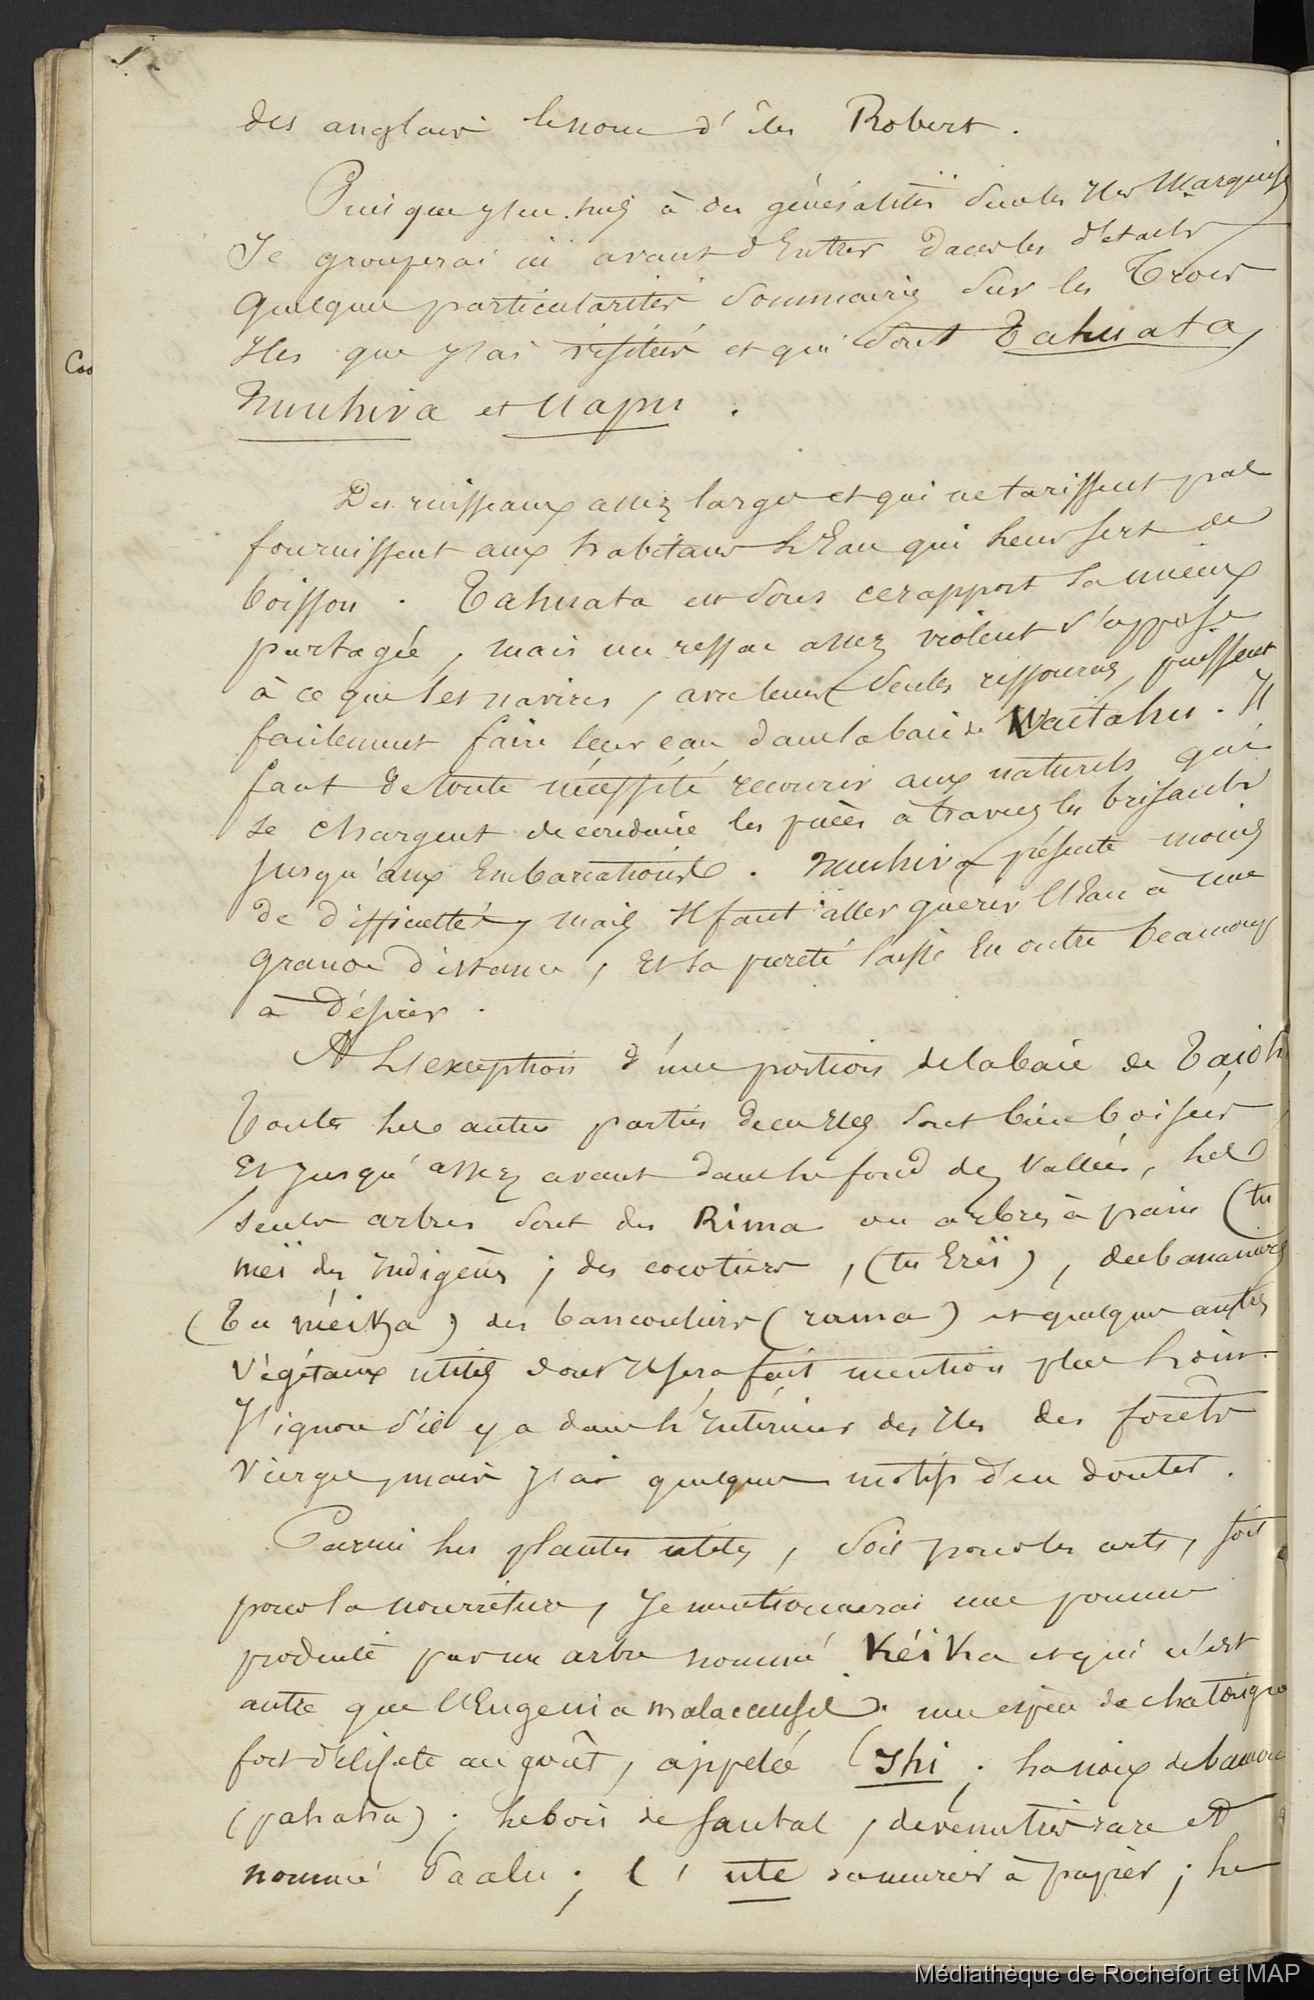 des anglais le nom d'îles Robert.
Puisque j'en suis à des généralités sur les Iles Marquises
Je grouperai ici avant d'Entrer dans les détails
quelques particularités sommaires sur les Trois
Iles que j'ai visitées et qui sont Tahuata,
Nuuhiva et Uapu.
Des ruisseaux assez larges et qui ne tarissent pas
fournissent aux habitans L'Eau qui Leur sert de
boisson. Tahuata est sous ce rapport la mieux
partagée, mais un ressac assez violent s'oppose
à ce que les navires, avec leurs seules ressources, puissent
facilement faire leur eau dans la baie de Waitahu. Il
faut de toute nécessité recourir aux naturels qui
se chargent de conduire les pièces à travers les brisants
jusqu'aux Embarcations. Nuuhiva présente moins
de difficultés, mais Il faut aller quérir l'Eau à une
grande distance, Et sa pureté laisse En outre beaucoup
à désirer.
A L'exception d'une portion de la baie de Taioh
Toutes Les autres parties de ces Iles sont bien boisées
Et jusqu'assez avant dans le fond des Vallées, Les
seuls arbres sont des Rima ou arbres à pain (tu
meï des Indigènes; des cocotiers, (tu Ereï), des bananiers
(Tu méïka) des bancouliers (rama) et quelques autres
Végétaux utiles dont Il sera fait mention plus Loin.
J'ignore s'il y a dans L'Intérieur des Iles des forêts
Vierges, mais j'ai quelques motifs d'en douter.
Parmi Les plantes utiles, soit pour les arts, soit
pour la nourriture, Je mentionnerai une pomme
produite par un arbre nommé Kéika et qui n'est
autre que l'Eugenia malaccensis. une espèce de chataigne
fort délicate au goût, appelée Ihi; La noix de bancou
(pahaha); Le bois de santal, devenu très rare et
nommé; l'ute ou murier à papier; Le
Médiathèque de Rochefort et MAP